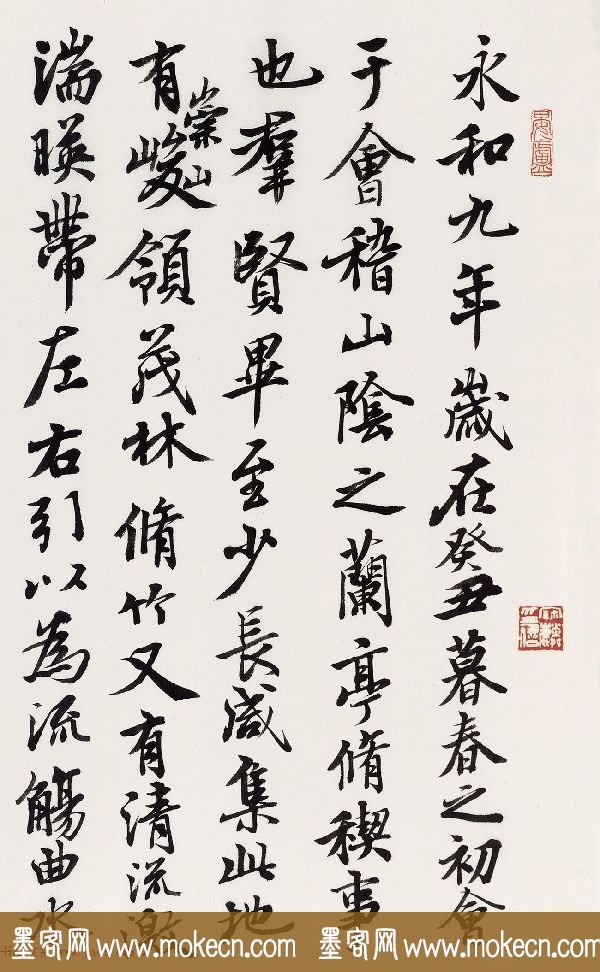 永和九年歲在癸丑暮春之初會
于會稽山陰之蘭亭脩稧事
也羣賢畢至少長咸集此地
有崇山峻領茂林脩竹又有清流激
湍暎帶左右引以為流觴曲水
墨客网_www.mokecn.com 墨客网_www.mokecn.com